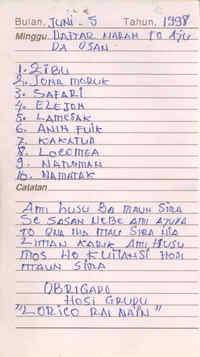 Bulan, JUNI - 5 Tahun, 1998
Minggu DAFTAR NARAN TO AJU
DA OSAN.
1. ZIBU
2. JONA MORUK
3. SAFARI
4. ELEJOH
5. LAMESAK
6. ANIN FUIK
7. KAKATUA
8. LOROMEA
9. NATUNIAN
10. NAMATAK
Catatan
AMI HUSU BA MAUN SIRA
SE SASAN NEBE AMI AJUDA
TO ONA IHA MAU SIRA NIA
LIMAN KARIK AMI HUSU
MOS HO KUITANSI HOSI
MAUN SIRA
OBRIGADO
HOSI GRUPU
"LORICO RAI NAIN"